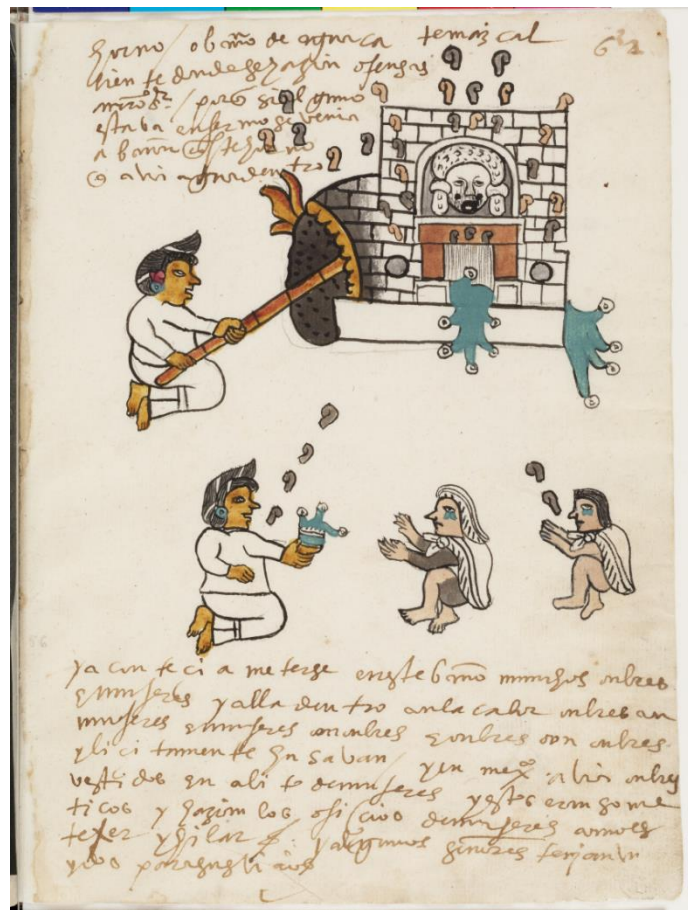 horno / o baño de agua ca temazcal
liente donde hazian ofensas
a nro Sr / pero si alguno
estava enfermo se venia
a bañar este horno
avia agua dentro
ya contecia meterse en este baño munchos onbres
y mujeres y alla dentro con la calor onbres con
mujeres y mujeres con onbres y onbres con onbres
ylicitamente husavan / y en mexco avia onbres
vestidos en abito de mujeres y estos eran some
ticos y hazian los oficios de mujeres como es
texer y hilar / y algunos señores tenian
para sus vicios